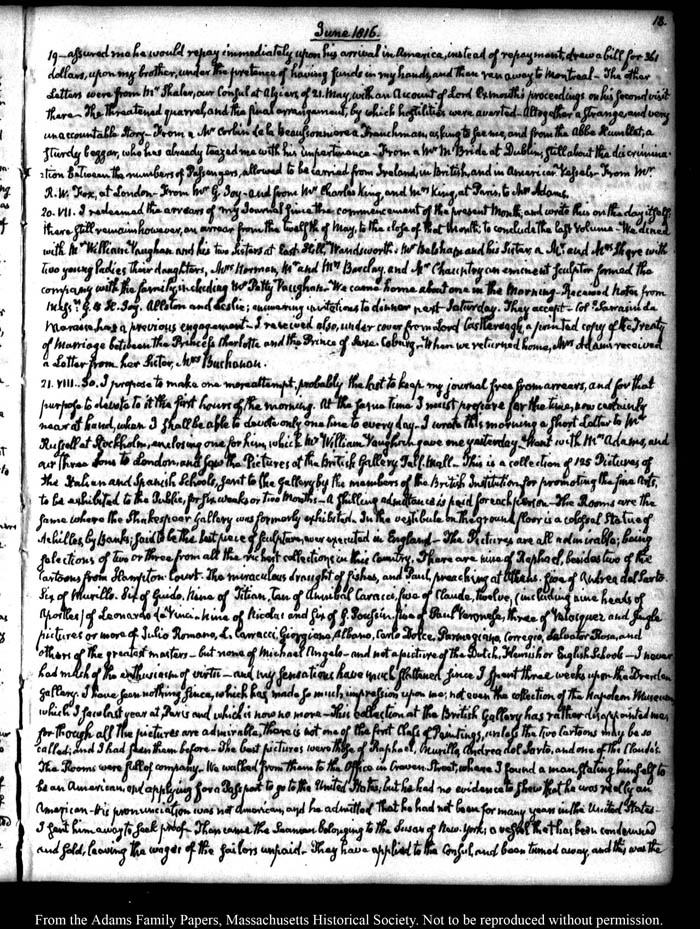 18.
June 1816.
19 — assured me he would repay immediately upon his arrival in America, instead of repayment, drew a bill for 361
dollars, upon my brother, under the pretence of having funds in my hands, and then ran away to Montreal — The other
Letters were from Mr Shaler, our Consul at Algiers, of 21. May, with an Account of Lord Exmouth's proceedings on his second visit
there — The threatened quarrel, and the final arrangement, by which hostilities were averted — Altogether a strange, and very
unaccountable Story — From a Mr Corbin de la a Frenchman, asking to see me, and from the Abbé a
sturdy beggar, who has already teazed me with his impertinence — From a Mr M. Bride at Dublin, still about the discrimina-
-tion between the numbers of Passengers, allowed to be carried from Ireland, in British, and in American Vessels — From Mr
R. W. Fox, at London — From Mr G. Joy — and from Mr Charles King, and Mrs King, at Paris, to Mrs Adams.
20. VII. I redeemed the arrears of my Journal since the commencement of the present Month, and wrote this on the day itself;
there still remains however, an arrear from the twelfth of May, to the close of that Month; to conclude the last volume — We dined
with Mr William Vaughan and his two Sisters at East-Hill, Wandsworth. Mr Belsham and his Sister, a Mr and Mrs Shore with
two young ladies their daughters, Mrs Norman, Mr and Mrs Barclay, and Mr Chauntry an eminent Sculptor formed the
company with the family, including Mr Petty Vaughan. We came home about one in the Morning — Received Notes from
Messrs G. & H. Joy. Allston and Leslie; answering invitations to dinner next Saturday. They accept — Col.
has a previous engagement — I received also, under cover from Lord Castlereagh, a printed copy of the Treaty
of Marriage between the Princess Charlotte and the Prince of Saxe-Coburg. When we returned home, Mrs Adams received
a Letter from her Sister, Mrs Buchanan.
21. VIII. 30. I propose to make one more attempt, probably the last to keep my journal free from arrears, and for that
purpose to devote to it the first hours of the morning. At the same time I must prepare for the time, now certainly
near at hand, when I shall be able to devote only one line to every day. I wrote this morning a short Letter to Mr
Russell at Stockholm, enclosing one for him, which Mr William Vaughan gave me yesterday. Went with Mrs Adams, and
our three Sons to London, and saw the Pictures at the British Gallery Pall-Mall — This is a collection of 125 Pictures of
the Italian and Spanish Schools, sent to the Gallery by the members of the British Institution for promoting the fine Arts,
to be exhibited to the Public, for six weeks or two Months — A shilling admittance is paid for each person — The Rooms are the
same where the Shakespear Gallery was formerly exhibited. In the vestibule on the ground floor is a colossal Statue of
Achilles, by Banks; said to be the best piece of sculpture, ever executed in England — The Pictures are all admirable; being
selections of two or three from all the richest collections in this Country. There are nine of Raphael, besides two of the
cartoons from Hampton-Court. The miraculous draught of fishes, and Paul, preaching at Athens. five of Andrea del Sarto.
Six of Murillo. Six of Guido. Nine of Titian, Ten of Annibal Caracci, five of Claude, twelve, (including nine heads of
Apostles) of Leonardo da Vinci — nine of Nicolas and Six of G. Poussin, five of Paul Veronese, three of Velasquez and single
pictures or more of Julio Romano, L. Carracci, Giorgione, Albano, Carlo Dolce, Parmegiano, Corregio, Salvator Rosa, and
others of the greatest masters — but none of Michael Angelo — and not a picture of the Dutch, Flemish or English Schools — I never
had much of the enthusiasm of virtu — and my sensations have much flattened since I spent three weeks upon the Dresden
gallery. I have seen nothing since, which has made so much impression upon me; not even the collection of the Napoleon Museum
which I saw last year at Paris and which is now no more — This collection at the British Gallery has rather disappointed me;
for though all the pictures are admirable, there is not one of the first Class of Paintings, unless the two Cartoons may be so
called; and I had seen them before — The best pictures were those of Raphael, Murillo, Andrea del Sarto, and one of the Claude's.
The Rooms were full of company — We walked from them to the Office in Craven Street, where I found a man, stating himself to
be an American, and applying for a Passport to go to the United States, but he had no evidence to shew that he was really an
American — His pronunciation was not American, and he admitted that he had not been for many years in the United States —
I sent him away to seek proof — Then came the Seamen belonging to the Susan of New-York; a vessel that has been condemned
and sold, leaving the wages of the sailors unpaid — They have applied to the Consul, and been turned away, and this was the
From the Adams Family Papers, Massachusetts Historical Society. Not to be reproduced without permission.